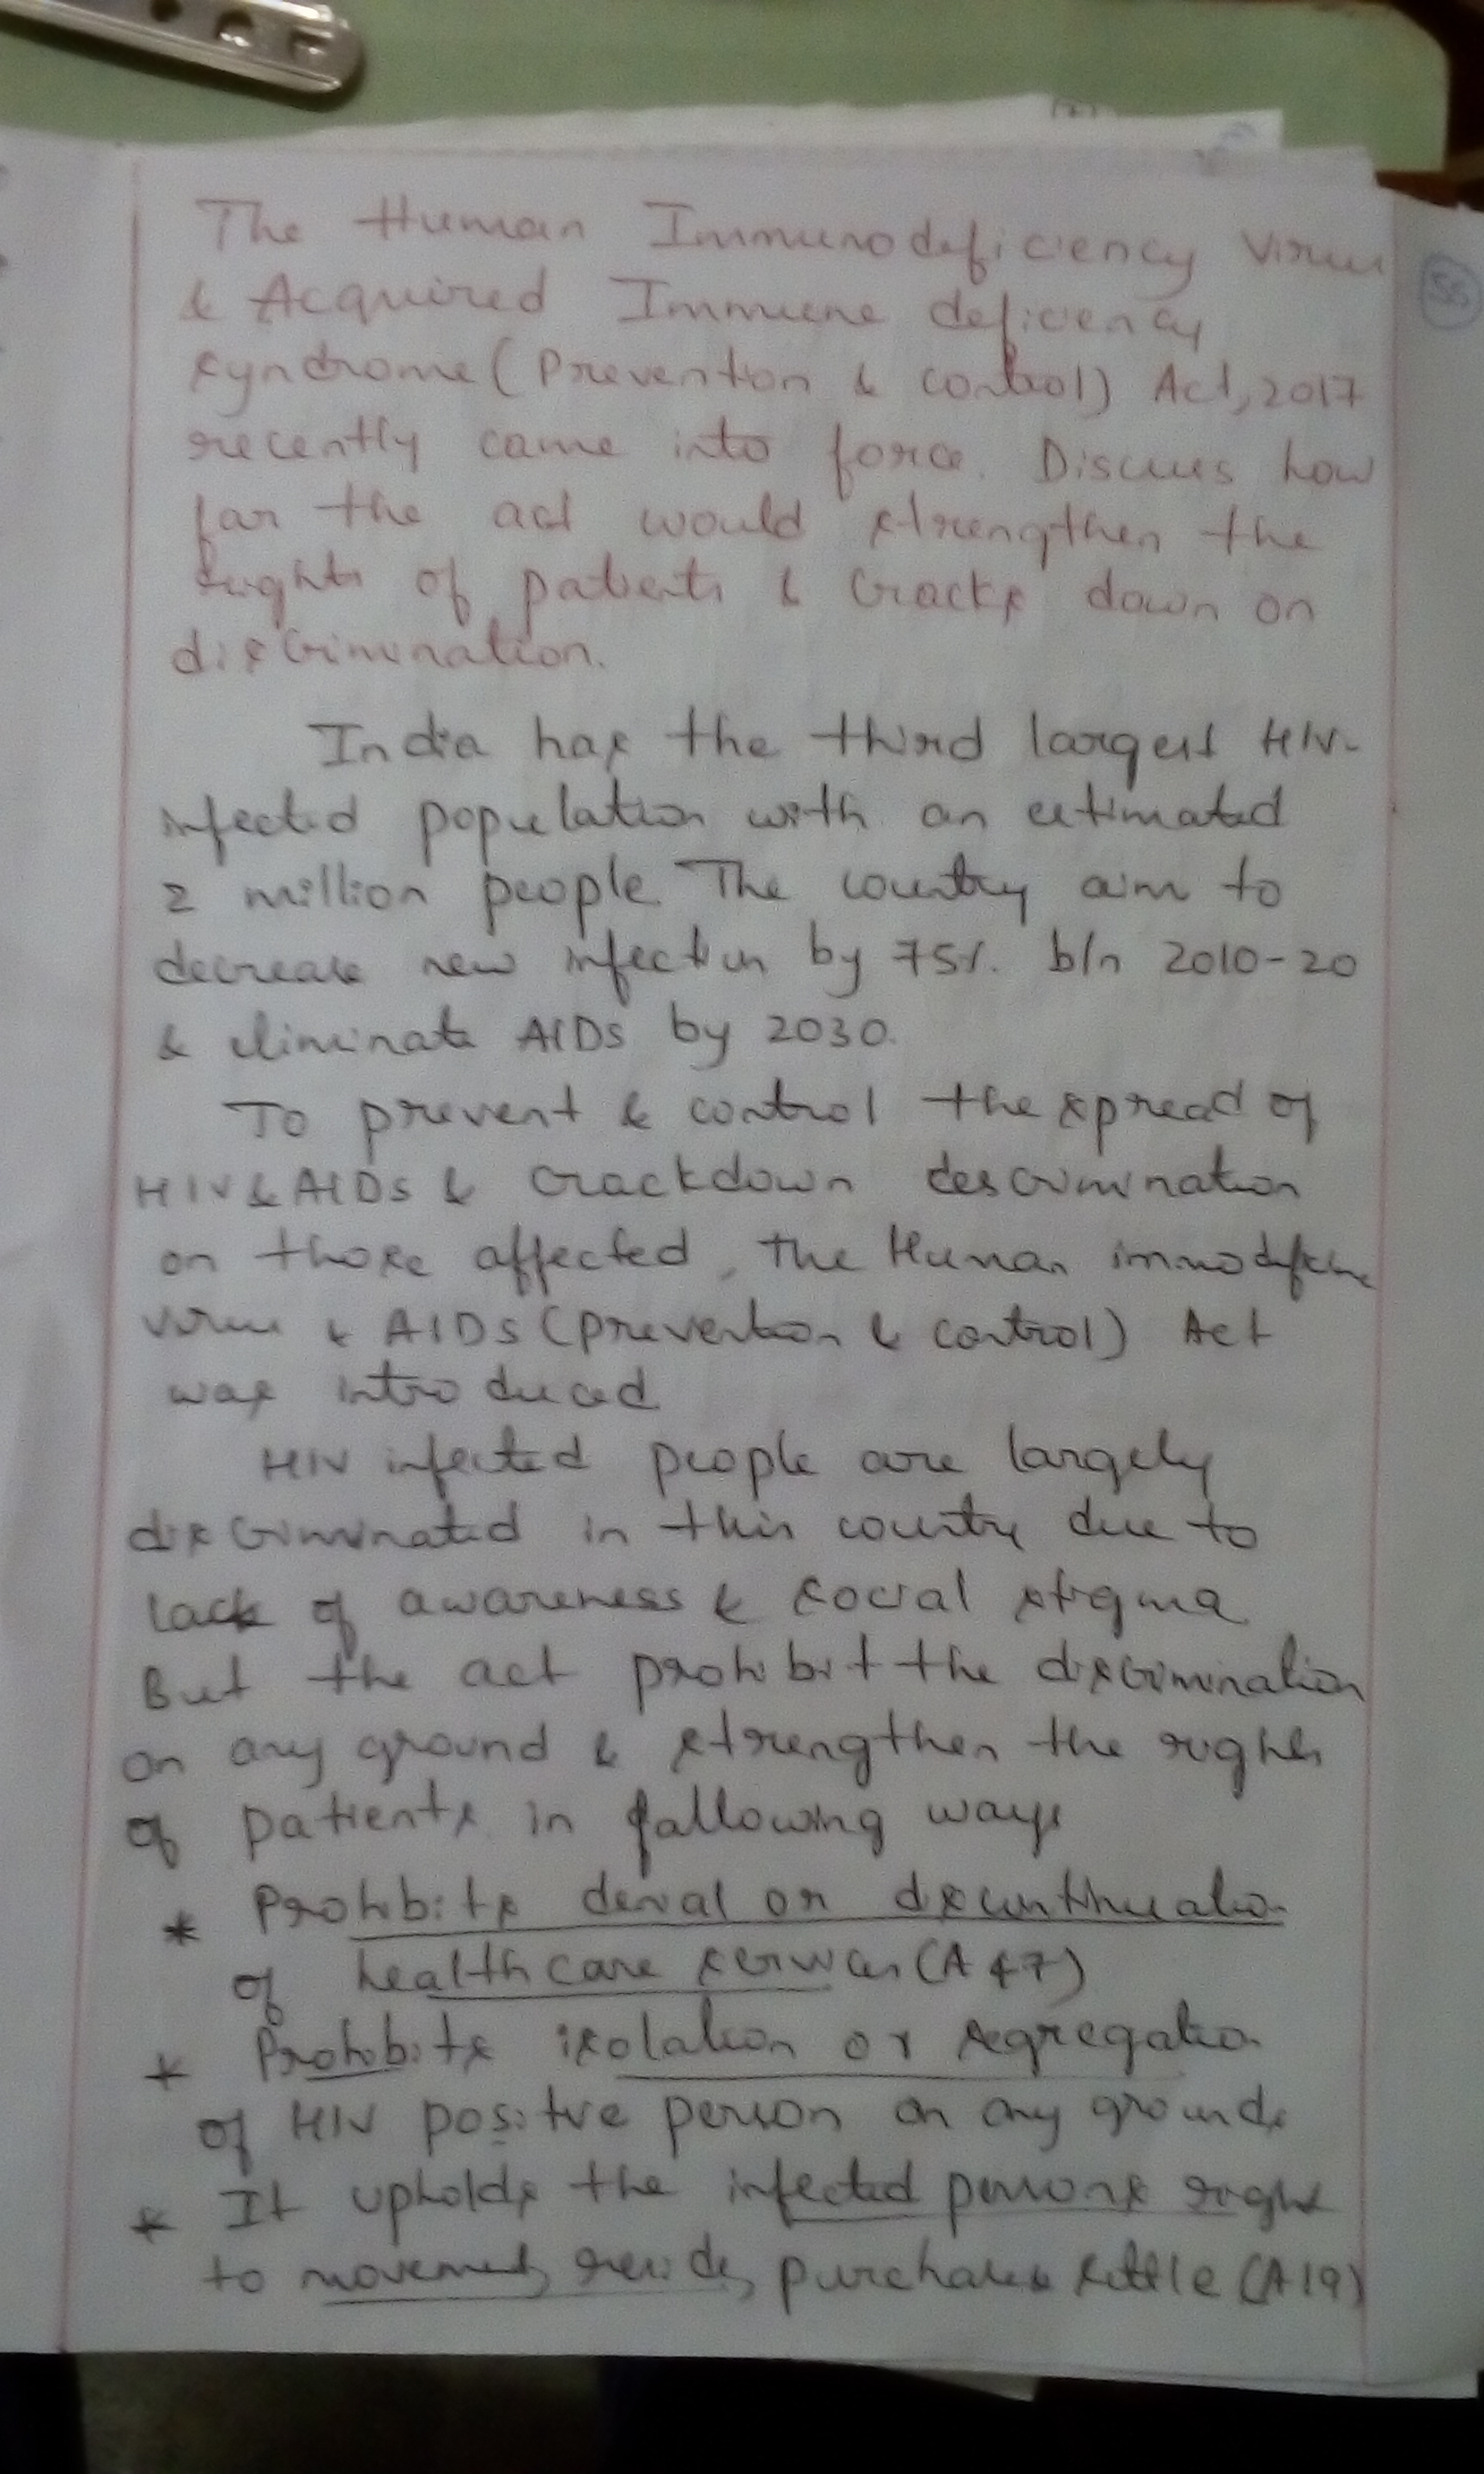 The Human Immunodeficiency Virus
& Acquired Immune deficiency
syndrome (Prevention & control) Act, 2017
recently came into force. Discuss how
far the act would strengthen the
rights of patients & Cracks down on
discrimination.
India has the third largest HIV-
infected population with an estimated
2 million people. The country aim to
decrease new infection by 75%. b/n 2010-20
& eliminate AIDs by 2030.
To prevent & control the spread of
HIV & AIDs & Crackdown descrimination
on those affected, the Human
virus & AIDs (prevention & control) Act
was introduced
HIV infected people are largely
discriminated in this country due to
lack of awareness & social stigma
But the act prohibit the discrimination
on any ground & strengthen the rights
of patients in following ways
* Prohibits denial or discontinuation
of healthcare services (A 47)
* Prohibits isolation or segregation
of HIV positive person on any grounds
* It upholds the infected persons right
to movement, reside, purchase & settle (A19)
55